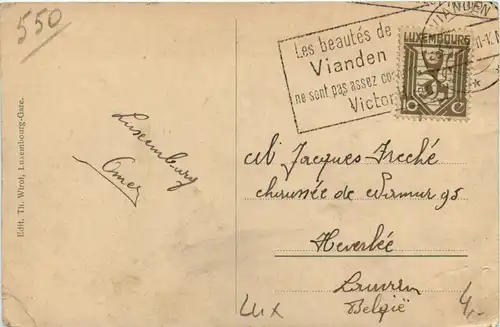 550
VIANDEN
Les beautés de
Vianden
ne sont pas assez con
Victor
LUXEMBOURG
10 C
Luxemburg
Omer
Edit. Th. Wirol, Luxembourg-Gare.
M Jacques Freché
chaussée de Namur 95
Heverlée
Louvren
België
Lux
4,-